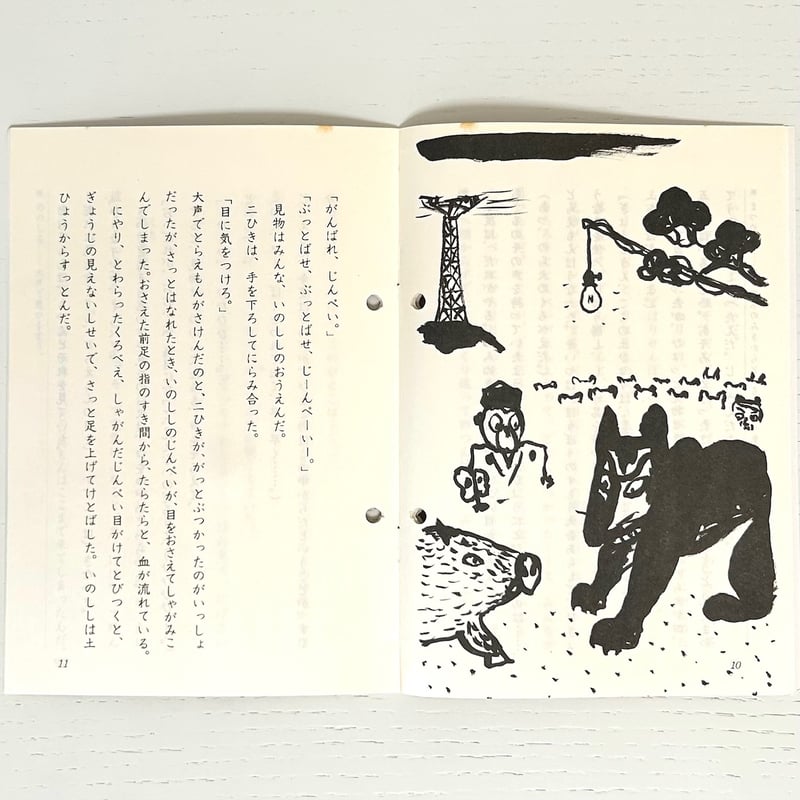 N
10
「がんばれ、じんべい。」
「ぶっとばせ、ぶっとばせ、じーんべーいー。」
見物はみんな、いのししのおうえんだ。
二ひきは、手を下ろしてにらみ合った。
「目に気をつけろ。」
大声でとらえもんがさけんだのと、二ひきが、がっとぶつかったのがいっしょ
だったが、さっとはなれたとき、いのししのじんべいが、目をおさえてしゃがみこ
んでしまった。おさえた前足の指のすき間から、たらたらと、血が流れている。
にやり、とわらったくろべえ、しゃがんだじんべい目がけてとびつくと、
ぎょうじの見えないしせいで、さっと足を上げてけとばした。いのししは土
ひょうからすっとんだ。
11